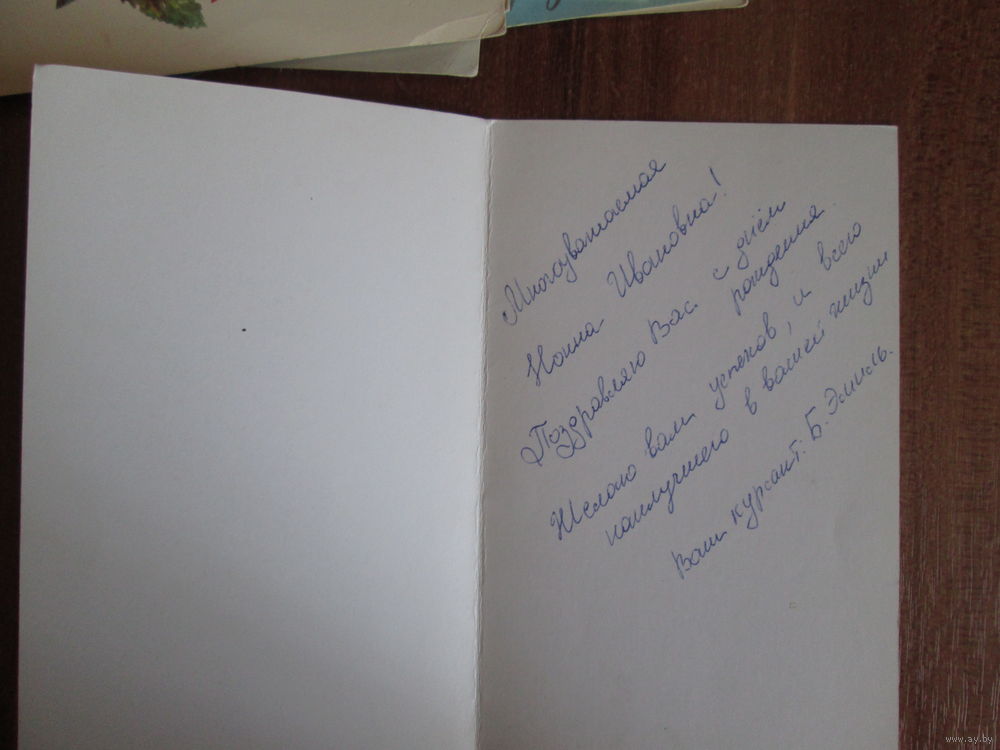 Многоуважаемая
Нонна Ивановна!
Поздравляю Вас с днём
рождения.
Желаю вам успехов, и всего
наилучшего в вашей жизни
Ваш курсант: Б. Эмиль.
www.ay.by